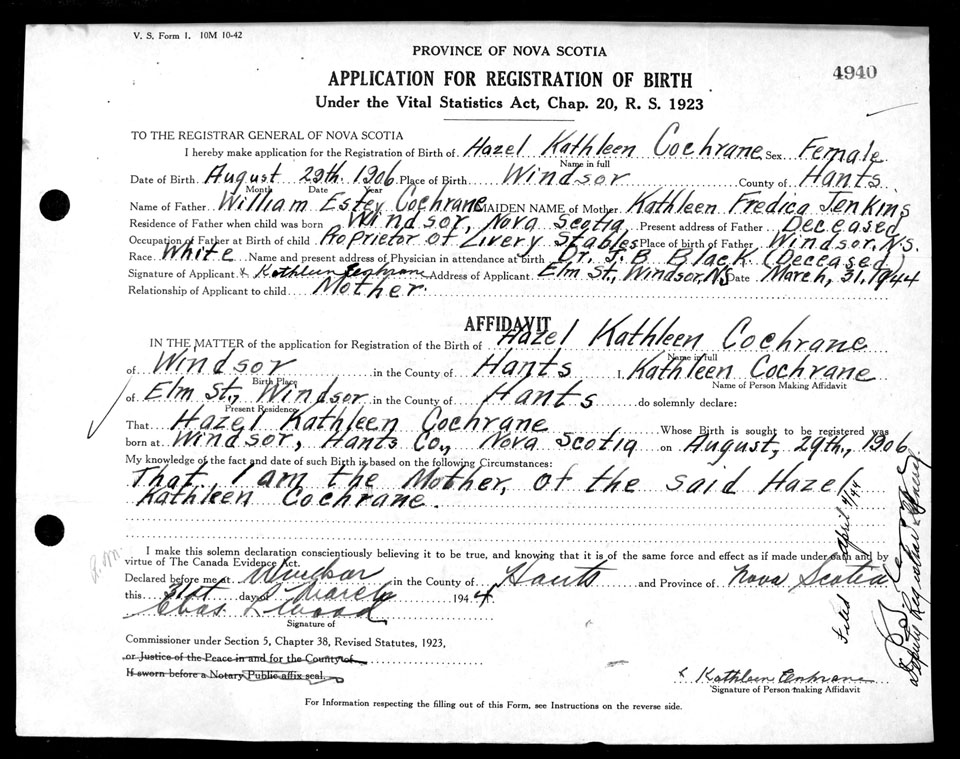 V. S. Form 1. 10M 10-42
PROVINCE OF NOVA SCOTIA
4940
APPLICATION FOR REGISTRATION OF BIRTH
Under the Vital Statistics Act, Chap. 20, R. S. 1923
TO THE REGISTRAR GENERAL OF NOVA SCOTIA
I hereby make application for the Registration of Birth of Hazel Kathleen Cochrane Sex Female
Name in full
Date of Birth August 29th. 1906 Place of Birth Windsor County of Hants
Month Date Year
Name of Father William Estey Cochrane MAIDEN NAME of Mother Kathleen Fredica Jenkins
Residence of Father when child was born Windsor, Nova Scotia, Present address of Father Deceased
Occupation of Father at Birth of child Proprietor of Livery Stables Place of birth of Father Windsor, N.S.
Race White Name and present address of Physician in attendance at birth Dr. J. B Black (Deceased)
Signature of Applicant x Kathleen Cochrane Address of Applicant Elm St., Windsor, N.S Date March, 31, 1944
Relationship of Applicant to child Mother.
AFFIDAVIT
IN THE MATTER of the application for Registration of the Birth of Hazel Kathleen Cochrane
Name in full
of Windsor in the County of Hants I, Kathleen Cochrane
Birth Place Name of Person Making Affidavit
of Elm St., Windsor in the County of Hants do solemnly declare:
Present Residence
That Hazel Kathleen Cochrane Whose Birth is sought to be registered was
born at Windsor, Hants Co., Nova Scotia on August, 29th., 1906
My knowledge of the fact and date of such Birth is based on the following Circumstances:
That, I am the Mother, of the said Hazel
Kathleen Cochrane.
I make this solemn declaration conscientiously believing it to be true, and knowing that it is of the same force and effect as if made under oath and by
virtue of The Canada Evidence Act.
Declared before me at Windsor in the County of Hants and Province of Nova Scotia
this 31st day of March 1944
Chas L Wood
Signature of
Commissioner under Section 5, Chapter 38, Revised Statutes, 1923,
or Justice of the Peace in and for the County of
If sworn before a Notary Public affix seal.
x Kathleen Cochrane
Signature of Person making Affidavit
For Information respecting the filling out of this Form, see Instructions on the reverse side.
Filed April 4/44
Deputy Registrar General